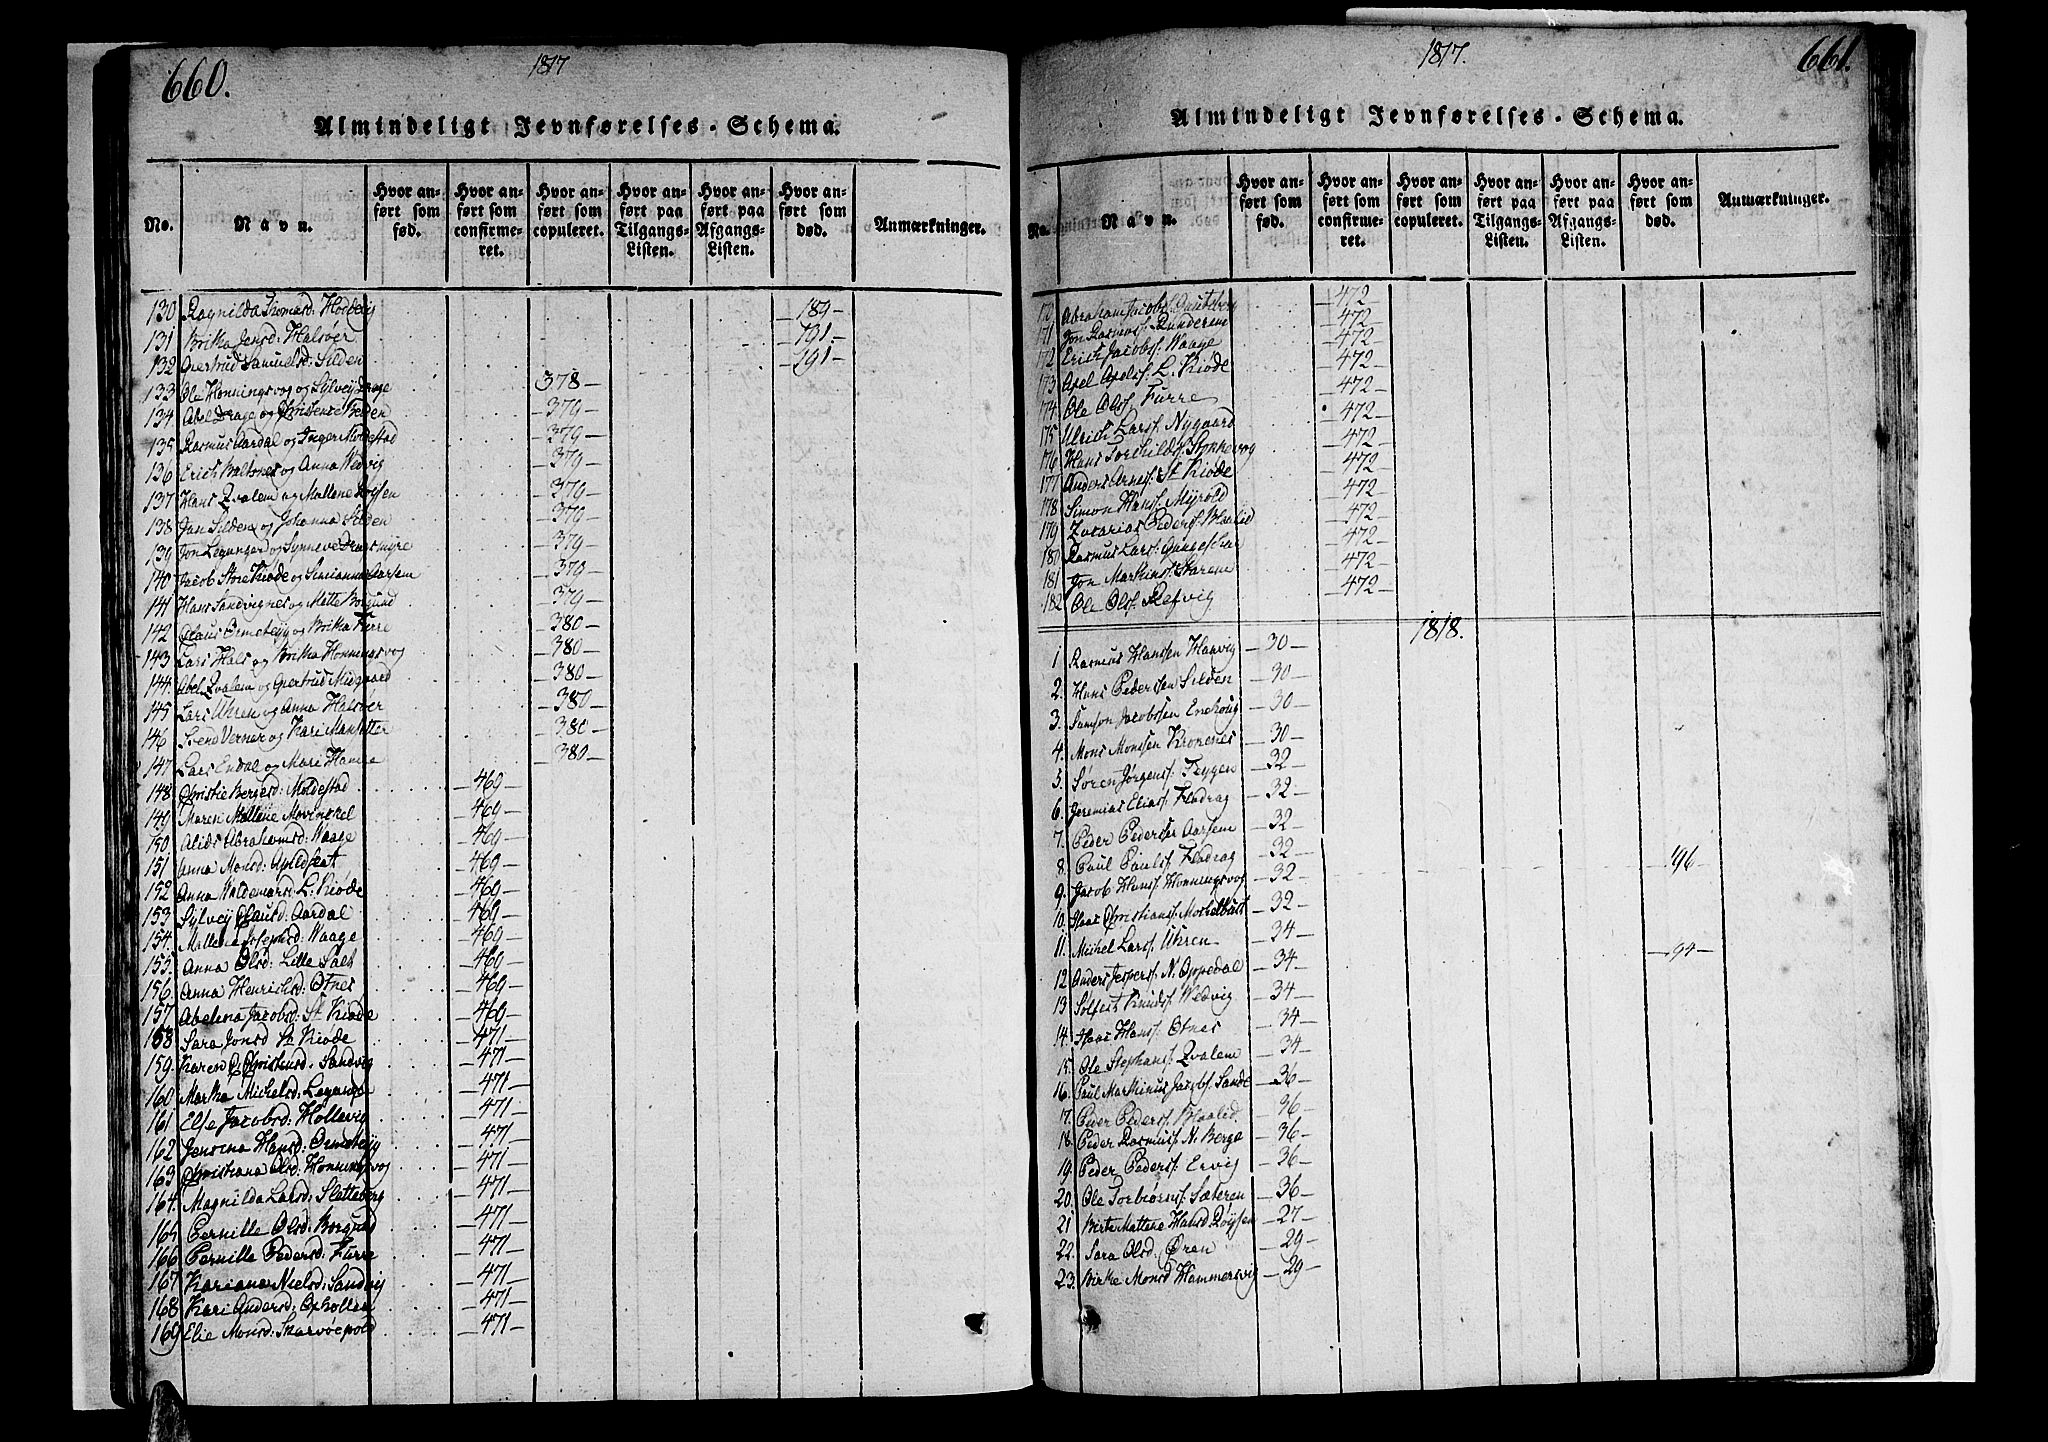 660.
1817
Almindeligt Jevnførelses-Schema.
No. Navn. Hvor anført som fød. Hvor anført som confirmeret. Hvor anført som copuleret. Hvor anført paa Tilgangs-Listen. Hvor anført paa Afgangs-Listen. Hvor anført som død. Anmærkninger.
130 Ragnilda Thomasd: Hoddevig 189
131 Britha Jensd: Halsøer 191
132 Giertrud Samuelsd: Silden 191
133 Ole Honningsvog og Sylvei Drage 378
134 Abel Drage og Christense Breden 379
135 Rasmus Aardal og Inger Moldestad 379
136 Erich Baltsnes og Anna Wedvig 379
137 Hans Qvalem og Mallene Røysen 379
138 Jan Silden og Johanna Silden 379
139 Jon Leganger og Synneve Dragemyre 379
140 Jacob Store Kiøde og Simianna Aarsem 379
141 Hans Sandvignes og Mette Borgund 379
142 Claus Ormehøy og Britha Furre 380
143 Lars Hals og Britha Honningsvog 380
144 Abel Qvalem og Giertrud Miøgaard 380
145 Lars Uhren og Anna Halsøer 380
146 Svend Verner og Kari Mansetter 380
147 Lars Endal og Mari Hamre 380
148 Christie Bergesd: Moldestad 469
149 Maren Mallene Movinckel 469
150 Alids Abrahamsd: Waage 469
151 Anna Monsd: Apildseat 469
152 Anna Waldemarsd: L. Kiøde 469
153 Sylvei Clausd: Aardal 469
154 Mallene Josephsd: Waage 469
155 Anna Olsd: Lille Sals 469
156 Anna Henrichsd: Otnes 469
157 Abelena Jacobsd: St. Kiøde 469
158 Sara Jonsd St. Kiøde 471
159 Karen C. Christensd: Sandvig 471
160 Martha Michelsd: Legange 471
161 Else Jacobsd: Hollevig 471
162 Jensena Hansd: Ormehøy 471
163 Christiana Olsd: Honningsvog 471
164 Magnilda Larsd: Sletteberg 471
165 Pernille Olsd: Borgund 471
166 Pernille Pedersd: Furre 471
167 Kariana Nielsd: Sandvig 471
168 Kari Andersd: Opkollen 471
169 Elie Monsd: Skarvøepold 471
1817.
661.
Almindeligt Jevnførelses-Schema.
No. Navn. Hvor anført som fød. Hvor anført som confirmeret. Hvor anført som copuleret. Hvor anført paa Tilgangs-Listen. Hvor anført paa Afgangs-Listen. Hvor anført som død. Anmærkninger.
170 Abraham Jacobs. 472
171 Jon Rasmuss. Runderem 472
172 Erich Jacobss. Waage 472
173 Axel Axelss. L. Kiøde 472
174 Ole Olss. Furre 472
175 Ulrich Larss. Nygaard 472
176 Hans Torchilds. Stønnevog 472
177 Anders Arness. St. Kiøde 472
178 Simon Hanss. Myrold 472
179 Zacarias Peders. Blaalid 472
180 Rasmus Larss: Gangeskar 472
181 Jon Marthins. Skorem 472
182 Ole Olss. Refvig 472
1818.
1 Rasmus Hanssen Haavig 30
2. Hans Pedersen Silden 30
3. Samson Jacobsen Enehoug 30
4. Mons Monssen Kronenes 30
5. Søren Jørgenss. Frygen 32
6. Jeremias Eliass. Flødrag 32
7. Peder Pedersen Aarsem 32
8. Paul Paulss. Flødrag 32 196
9. Jacob Hanss. Honningsvog 32
10. Isaac Christians. Mochelbust 32
11. Michel Larss. Uhren 34 94
12 Anders Jespers. N. Oppedal 34
13 Solfest Knuds. Wedvig 34
14. Isaac Hanss. Otnes 34
15. Ole Stephans. Qvalem 34
16. Paul Marthinus Jacobs. Sande 36
17. Peder Peders. Blaalid 36
18. Peder Rasmuss. N. Berge 36
19. Peder Peders. Ervig 36
20. Ole Torbiørns. Sæteren 36
21 Berte Mallene Hansd Røysen 27
22. Sara Olsd. Øren 29
23. Birthe Monsd Hammersvig 29